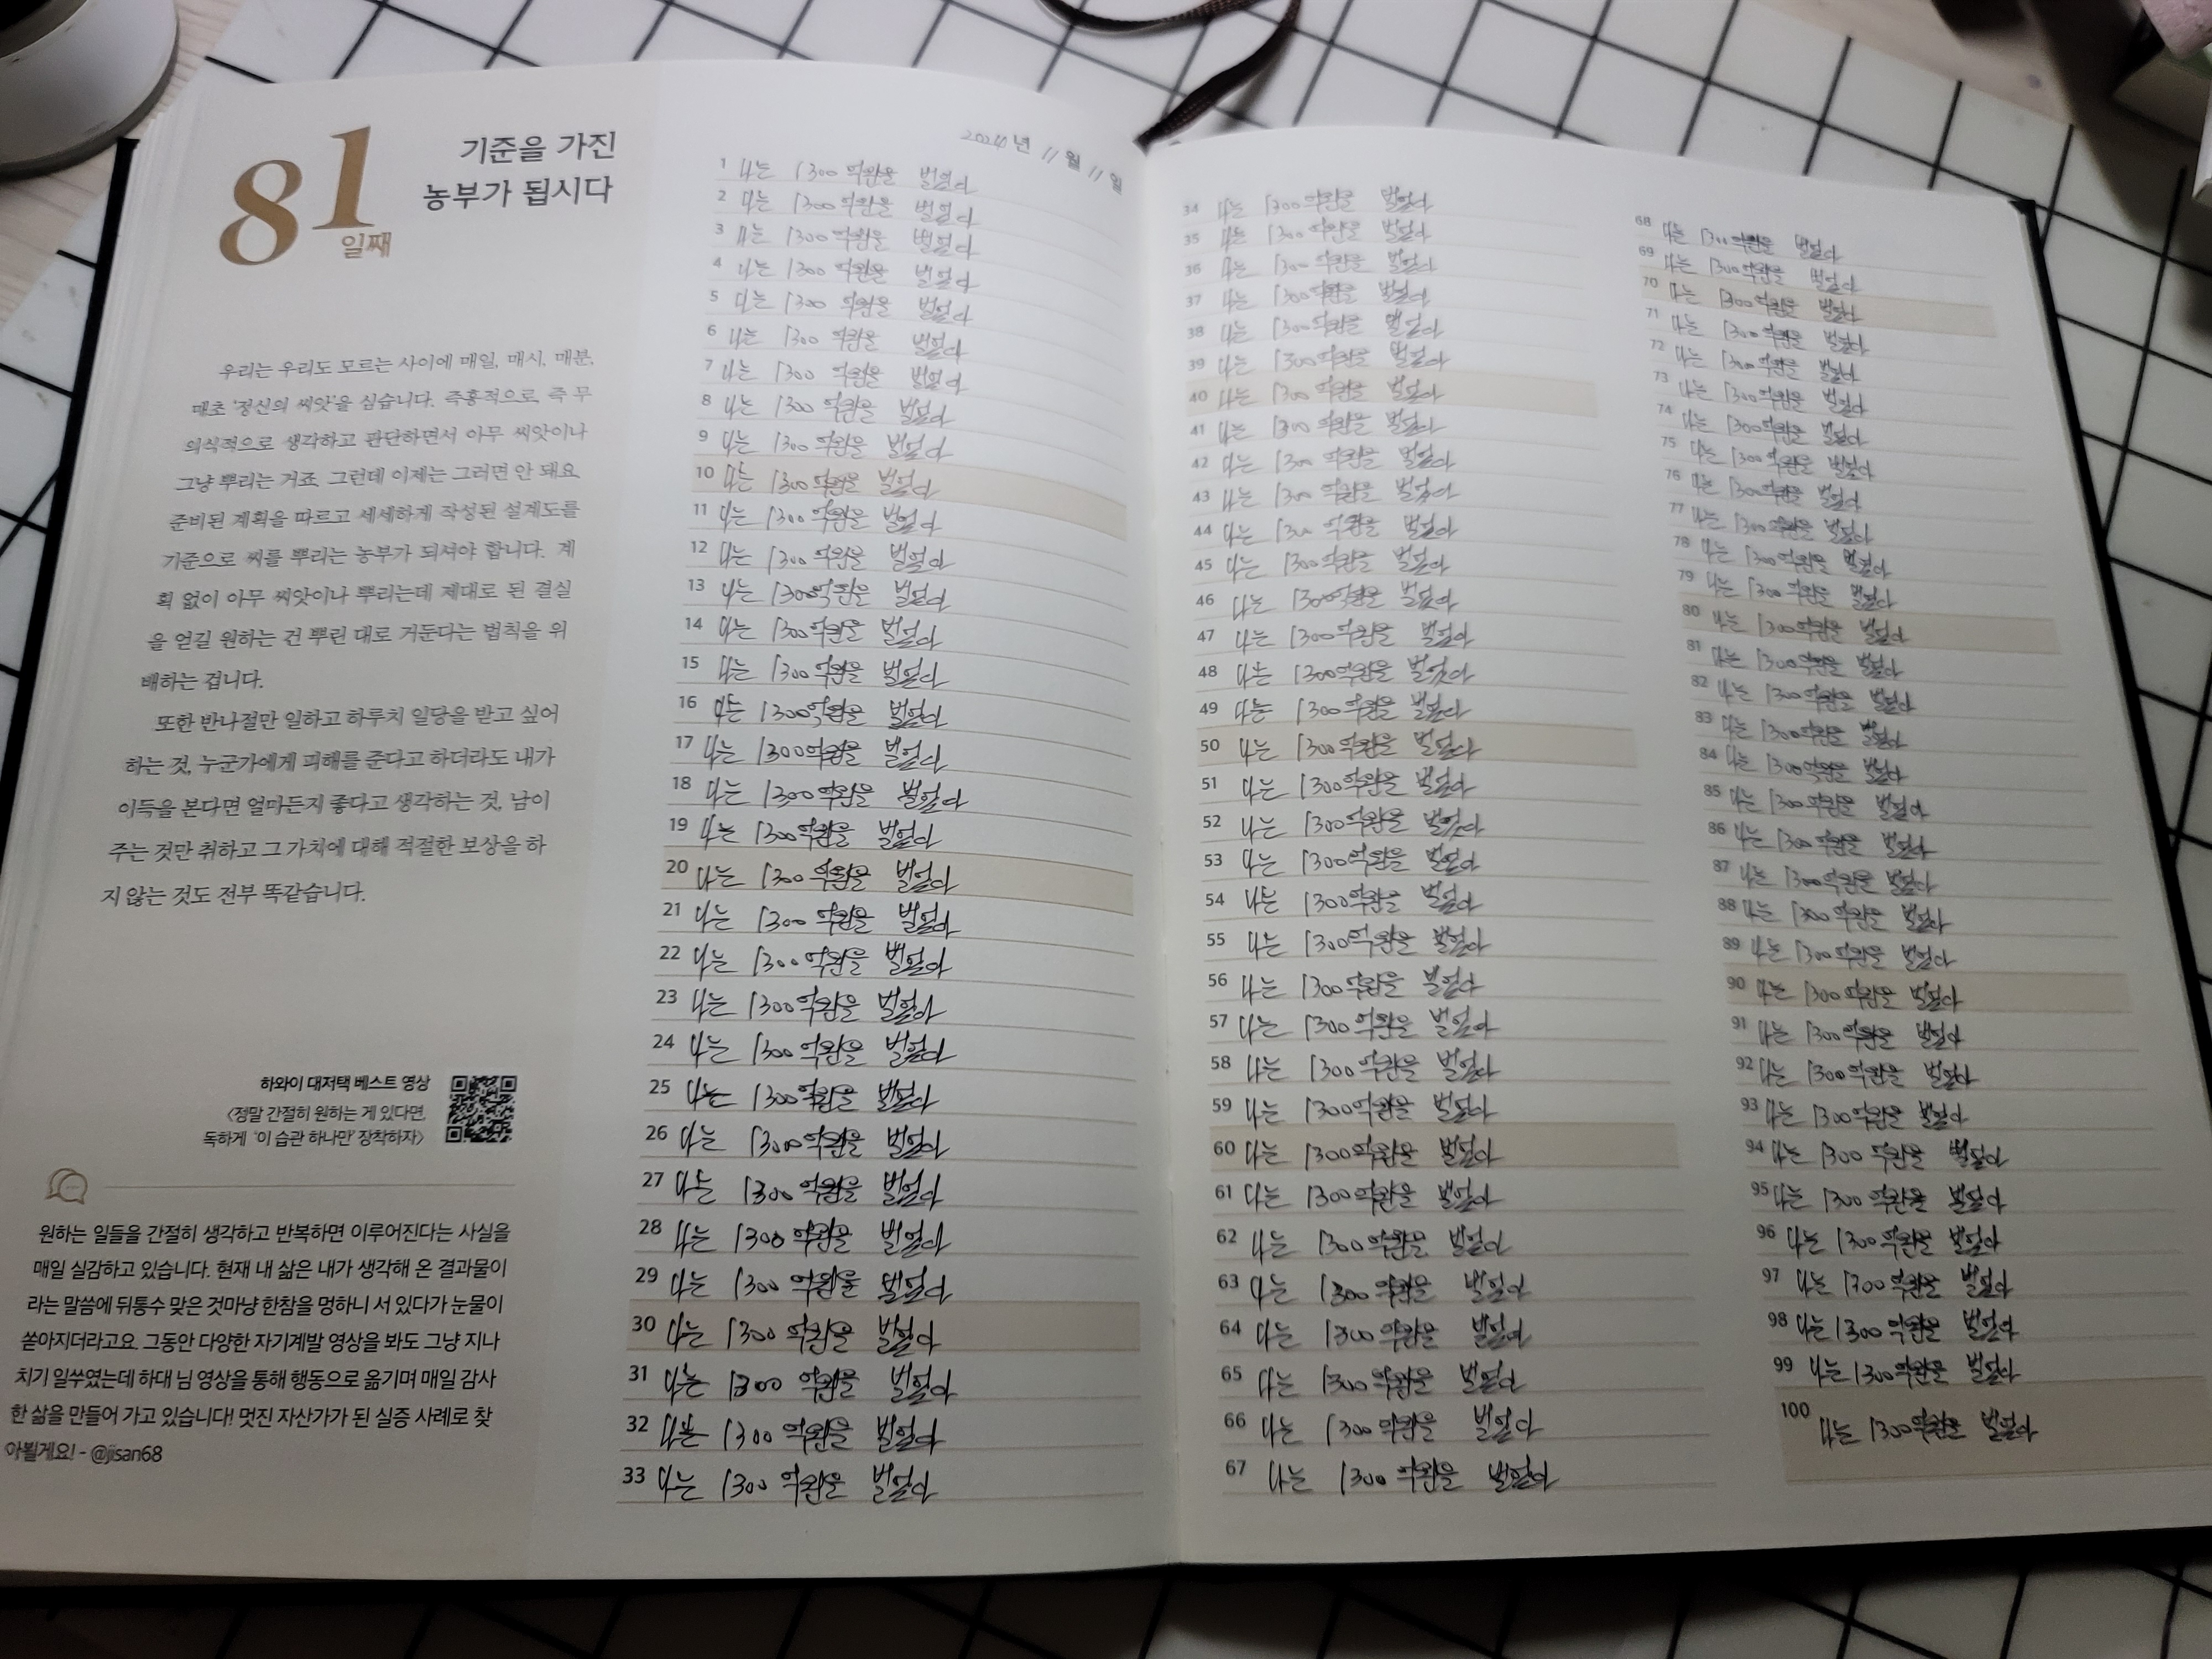 81
일째
기준을 가진
농부가 됩시다
우리는 우리도 모르는 사이에 매일, 매시, 매분,
매초 '정신의 씨앗'을 심습니다. 즉흥적으로, 즉 무
의식적으로 생각하고 판단하면서 아무 씨앗이나
그냥 뿌리는 거죠. 그런데 이제는 그러면 안 돼요.
준비된 계획을 따르고 세세하게 작성된 설계도를
기준으로 씨를 뿌리는 농부가 되셔야 합니다. 계
획 없이 아무 씨앗이나 뿌리는데 제대로 된 결실
을 얻길 원하는 건 뿌린 대로 거둔다는 법칙을 위
배하는 겁니다.
또한 반나절만 일하고 하루치 일당을 받고 싶어
하는 것, 누군가에게 피해를 준다고 하더라도 내가
이득을 본다면 얼마든지 좋다고 생각하는 것, 남이
주는 것만 취하고 그 가치에 대해 적절한 보상을 하
지 않는 것도 전부 똑같습니다.
하와이 대저택 베스트 영상
<정말 간절히 원하는 게 있다면,
독하게 '이 습관 하나만' 장착하자>
원하는 일들을 간절히 생각하고 반복하면 이루어진다는 사실을
매일 실감하고 있습니다. 현재 내 삶은 내가 생각해 온 결과물이
라는 말씀에 뒤통수 맞은 것마냥 한참을 멍하니 서 있다가 눈물이
쏟아지더라고요. 그동안 다양한 자기계발 영상을 봐도 그냥 지나
치기 일쑤였는데 하대 님 영상을 통해 행동으로 옮기며 매일 감사
한 삶을 만들어 가고 있습니다! 멋진 자산가가 된 실증 사례로 찾
아뵐게요! - @jisan68
2024년 11월 11일
1 나는 1300억원을 벌었다
2 나는 1300억원을 벌었다
3 나는 1300억원을 벌었다
4 나는 1300억원을 벌었다
5 나는 1300억원을 벌었다
6 나는 1300억원을 벌었다
7 나는 1300억원을 벌었다
8 나는 1300억원을 벌었다
9 나는 1300억원을 벌었다
10 나는 1300억원을 벌었다
11 나는 1300억원을 벌었다
12 나는 1300억원을 벌었다
13 나는 1300억원을 벌었다
14 나는 1300억원을 벌었다
15 나는 1300억원을 벌었다
16 나는 1300억원을 벌었다
17 나는 1300억원을 벌었다
18 나는 1300억원을 벌었다
19 나는 1300억원을 벌었다
20 나는 1300억원을 벌었다
21 나는 1300억원을 벌었다
22 나는 1300억원을 벌었다
23 나는 1300억원을 벌었다
24 나는 1300억원을 벌었다
25 나는 1300억원을 벌었다
26 나는 1300억원을 벌었다
27 나는 1300억원을 벌었다
28 나는 1300억원을 벌었다
29 나는 1300억원을 벌었다
30 나는 1300억원을 벌었다
31 나는 1300억원을 벌었다
32 나는 1300억원을 벌었다
33 나는 1300억원을 벌었다
34 나는 1300억원을 벌었다
35 나는 1300억원을 벌었다
36 나는 1300억원을 벌었다
37 나는 1300억원을 벌었다
38 나는 1300억원을 벌었다
39 나는 1300억원을 벌었다
40 나는 1300억원을 벌었다
41 나는 1300억원을 벌었다
42 나는 1300억원을 벌었다
43 나는 1300억원을 벌었다
44 나는 1300억원을 벌었다
45 나는 1300억원을 벌었다
46 나는 1300억원을 벌었다
47 나는 1300억원을 벌었다
48 나는 1300억원을 벌었다
49 나는 1300억원을 벌었다
50 나는 1300억원을 벌었다
51 나는 1300억원을 벌었다
52 나는 1300억원을 벌었다
53 나는 1300억원을 벌었다
54 나는 1300억원을 벌었다
55 나는 1300억원을 벌었다
56 나는 1300억원을 벌었다
57 나는 1300억원을 벌었다
58 나는 1300억원을 벌었다
59 나는 1300억원을 벌었다
60 나는 1300억원을 벌었다
61 나는 1300억원을 벌었다
62 나는 1300억원을 벌었다
63 나는 1300억원을 벌었다
64 나는 1300억원을 벌었다
65 나는 1300억원을 벌었다
66 나는 1300억원을 벌었다
67 나는 1300억원을 벌었다
68 나는 1300억원을 벌었다
69 나는 1300억원을 벌었다
70 나는 1300억원을 벌었다
71 나는 1300억원을 벌었다
72 나는 1300억원을 벌었다
73 나는 1300억원을 벌었다
74 나는 1300억원을 벌었다
75 나는 1300억원을 벌었다
76 나는 1300억원을 벌었다
77 나는 1300억원을 벌었다
78 나는 1300억원을 벌었다
79 나는 1300억원을 벌었다
80 나는 1300억원을 벌었다
81 나는 1300억원을 벌었다
82 나는 1300억원을 벌었다
83 나는 1300억원을 벌었다
84 나는 1300억원을 벌었다
85 나는 1300억원을 벌었다
86 나는 1300억원을 벌었다
87 나는 1300억원을 벌었다
88 나는 1300억원을 벌었다
89 나는 1300억원을 벌었다
90 나는 1300억원을 벌었다
91 나는 1300억원을 벌었다
92 나는 1300억원을 벌었다
93 나는 1300억원을 벌었다
94 나는 1300억원을 벌었다
95 나는 1300억원을 벌었다
96 나는 1300억원을 벌었다
97 나는 1300억원을 벌었다
98 나는 1300억원을 벌었다
99 나는 1300억원을 벌었다
100 나는 1300억원을 벌었다